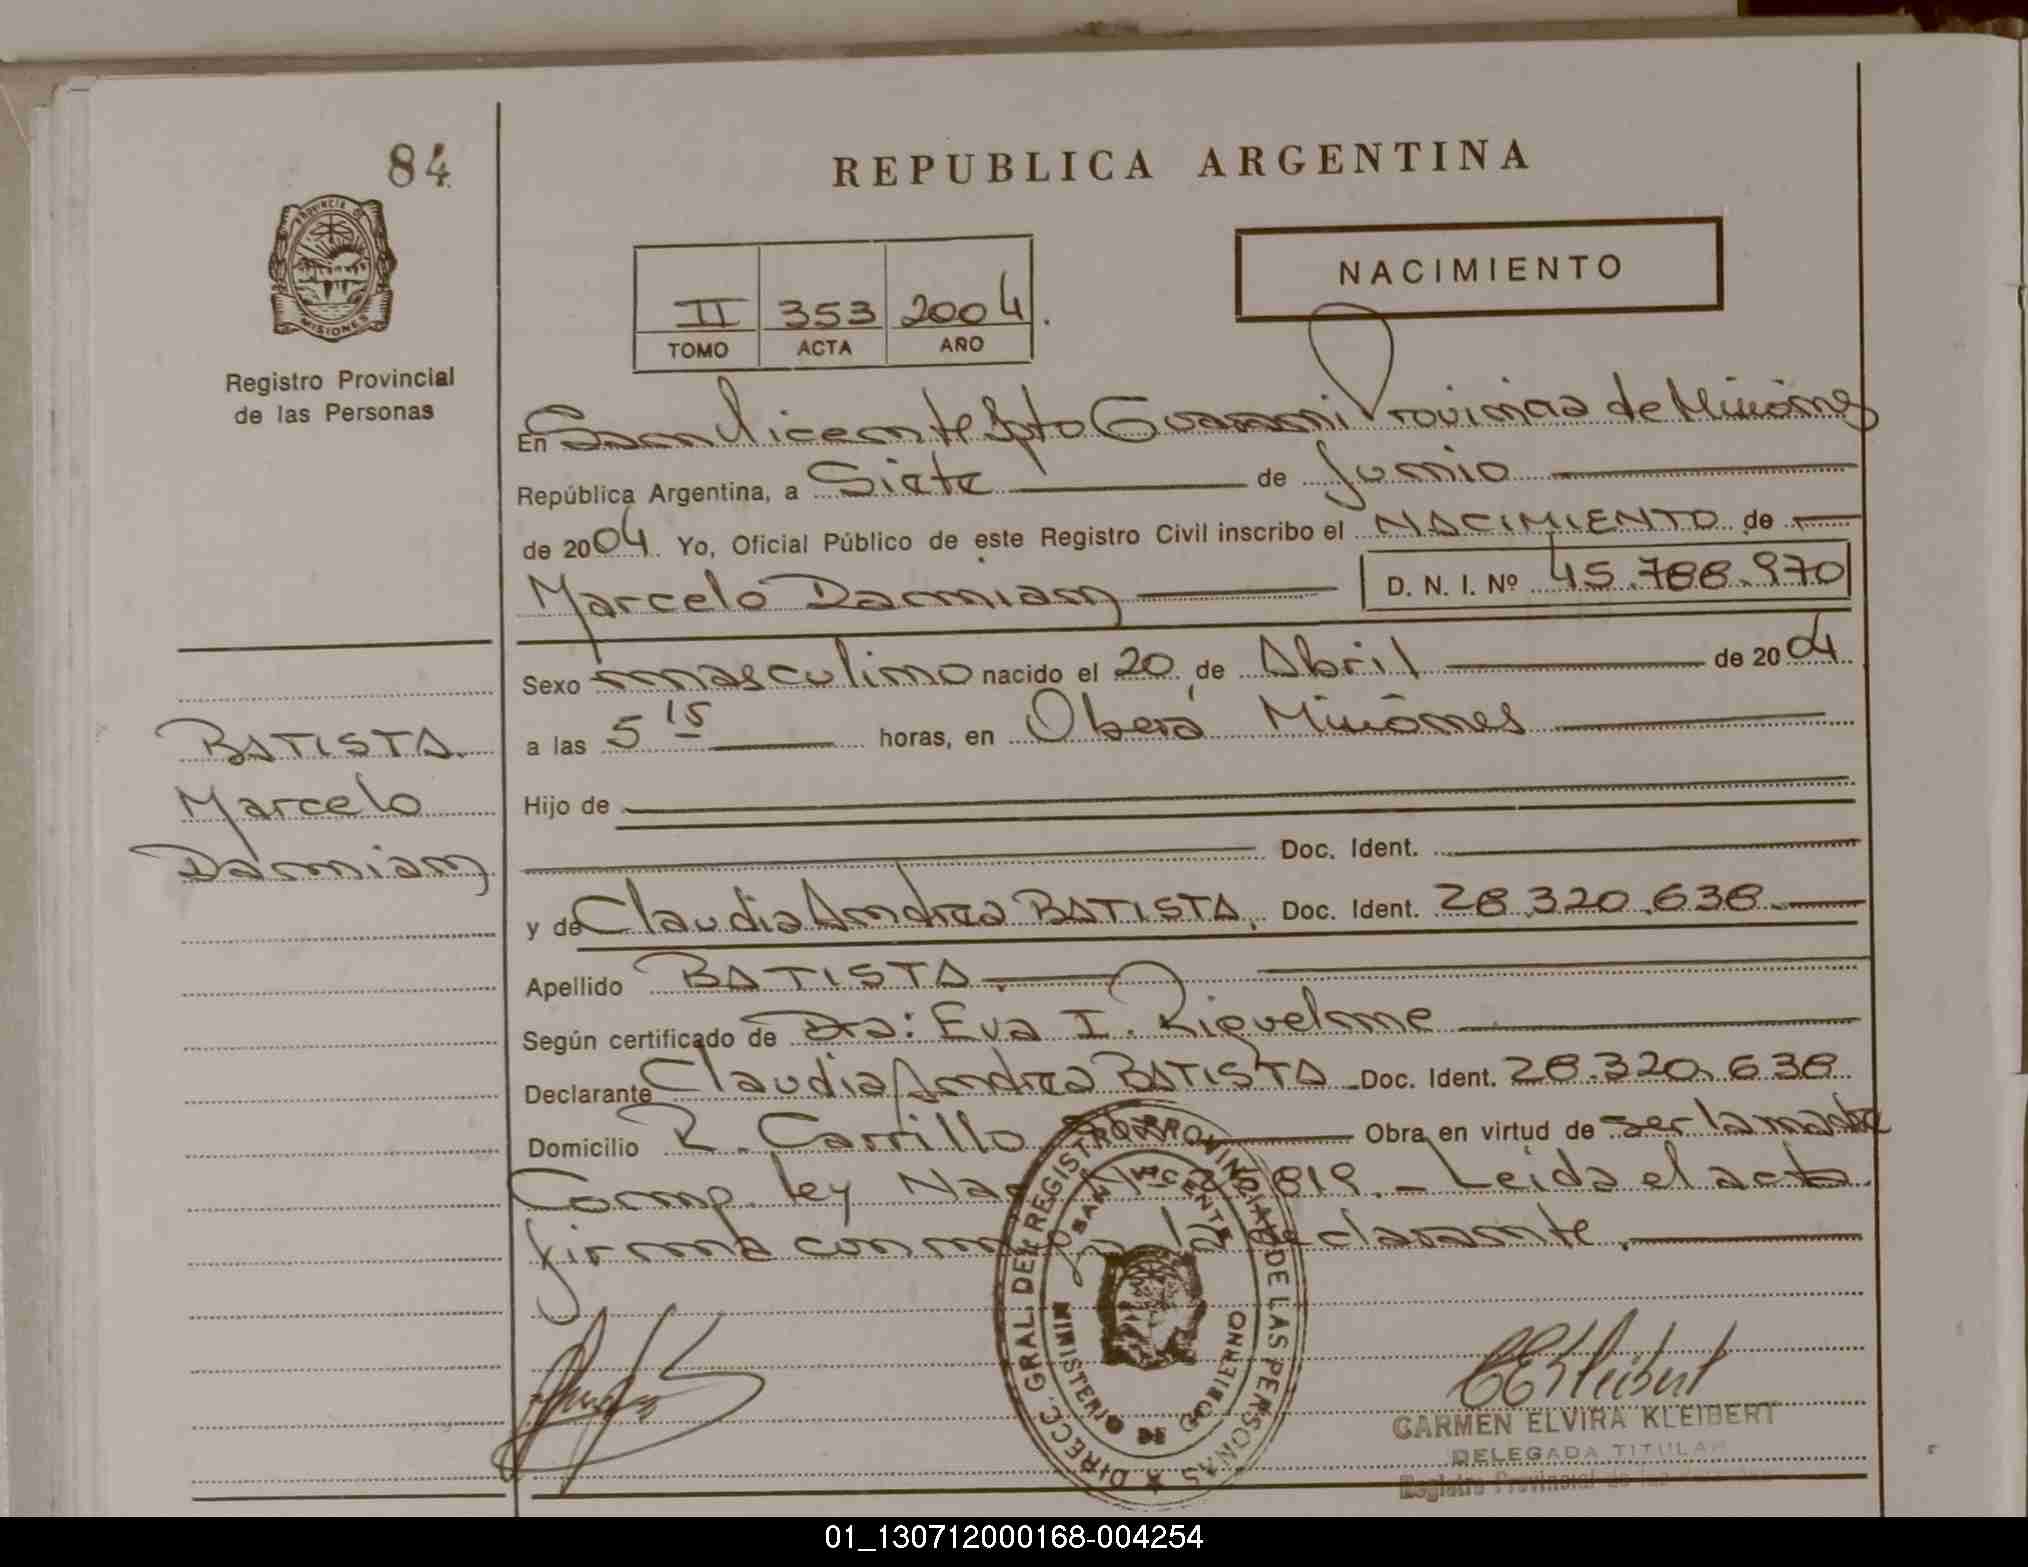 84
REPUBLICA ARGENTINA
Provincia de
MISIONES
Registro Provincial
de las Personas
NACIMIENTO
II 353 2004
TOMO ACTA AÑO
En San Vicente Dpto Guarani Provincia de Misiones
República Argentina, a Siete de Junio
de 2004. Yo, Oficial Público de este Registro Civil inscribo el NACIMIENTO de
Marcelo Damian D. N. I. Nº 45.788.970
Sexo masculino nacido el 20 de Abril de 2004
a las 5 15 horas, en Oberá Misiones
BATISTA
Marcelo
Damian
Hijo de
Doc. Ident.
y de Claudia Andrea BATISTA, Doc. Ident. 28.320.638.
Apellido BATISTA.
Según certificado de Dra: Eva I. Riquelme
Declarante Claudia Andrea BATISTA Doc. Ident. 28.320.638
Domicilio R. Carrillo Obra en virtud de ser la madre
Comp. ley Nac Nº 25819. - Leida el acta
firma conmigo la declarante.
DIRECC. GRAL. DEL REGISTRO PROVINCIAL DE LAS PERSONAS
SAN VICENTE
MINISTERIO DE GOBIERNO
CEKleibert
CARMEN ELVIRA KLEIBERT
DELEGADA TITULAR
Registro Provincial de las
01_130712000168-004254